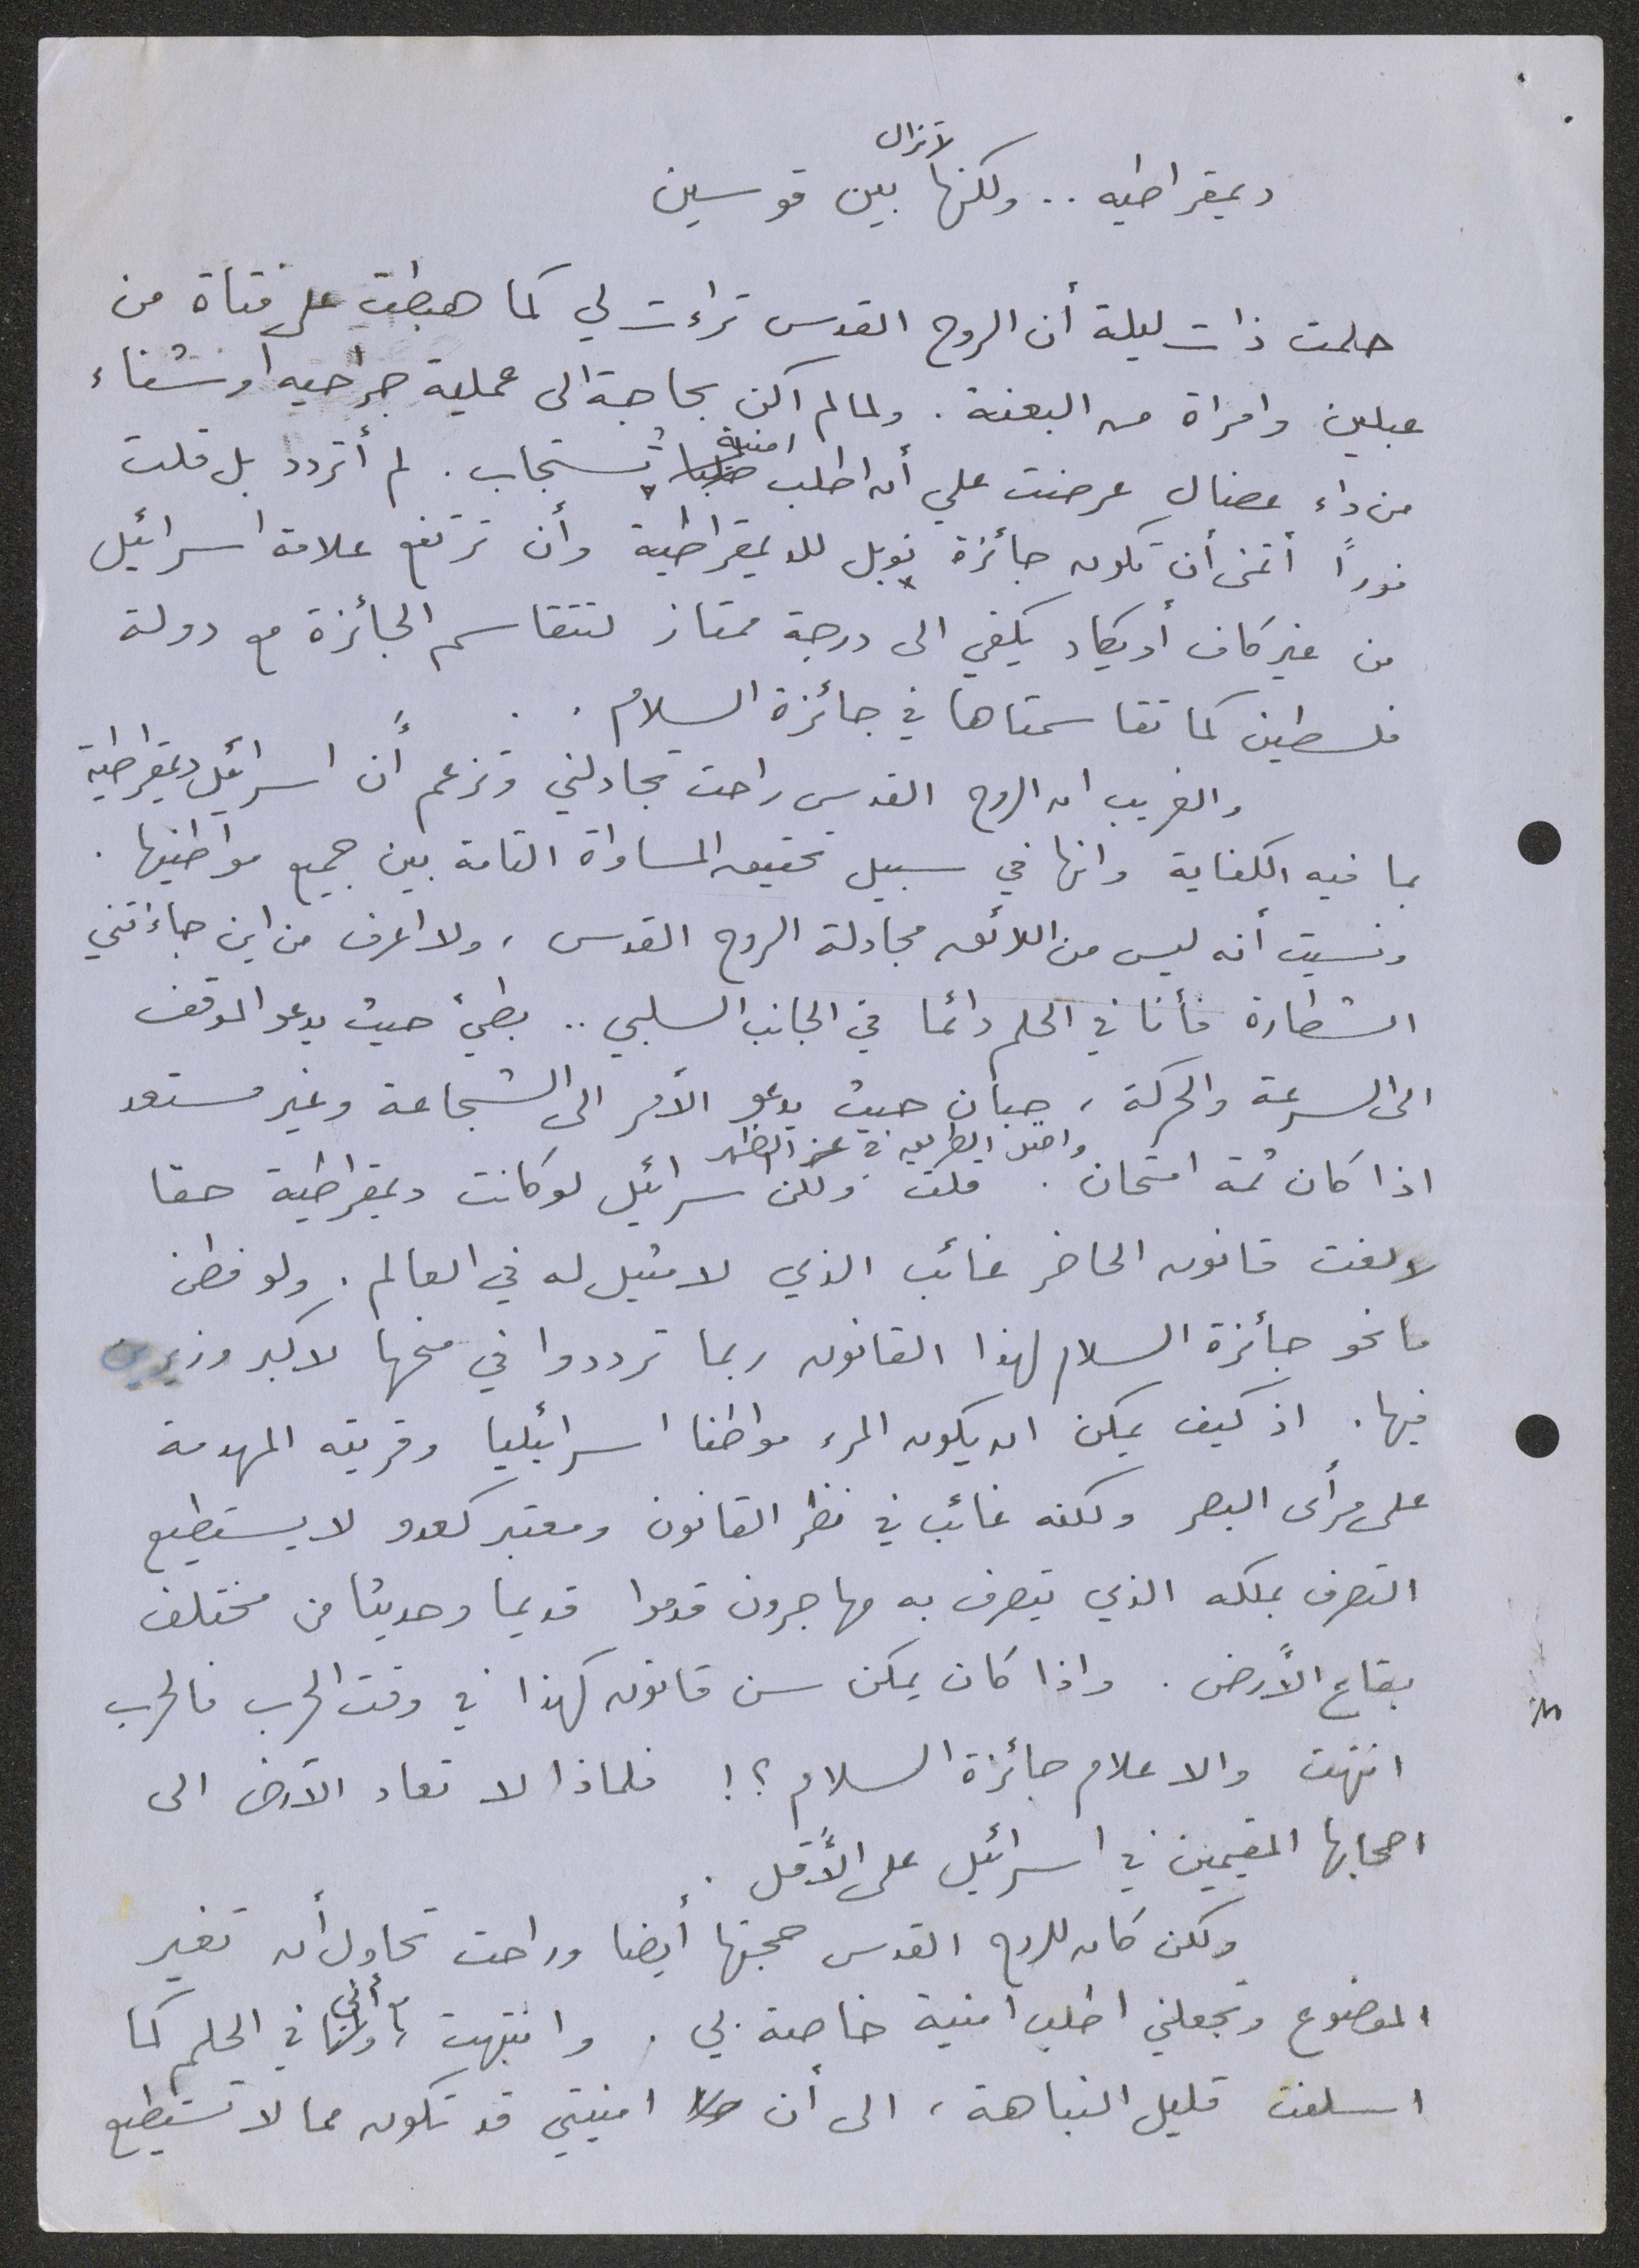 ديمقراطيه .. ولكنها لا تزال بين قوسين
حلمت ذات ليلة أن الروح القدس تراءت لي كما هبطت على فتاة من
عبلين وامراة من البعنة . ولما لم اكن بحاجة الى عملية جراحيه او شفاء
من داء عضال عرضت علي أن اطلب امنية تستجاب . لم أتردد بل قلت
فوراً أتمنى أن تكون جائزة نوبل للديمقراطية وأن ترتفع علامة اسرائيل
من غير كاف أو يكاد يكفي الى درجة ممتاز لتتقاسم الجائزة مع دولة
فلسطين كما تقاسمتاها في جائزة السلام .
والغريب ان الروح القدس راحت تجادلني وتزعم أن اسرائيل ديمقراطية
بما فيه الكفاية وانها في سبيل تحقيق المساواة التامة بين جميع مواطنيها .
ونسيت أنه ليس من اللائق مجادلة الروح القدس ، ولا اعرف من اين جاءتني
الشطارة فأنا في الحلم دائما في الجانب السلبي .. بطئ حيث يدعو الموقف
الى السرعة والحركة ، جبان حيث يدعو الأمر الى الشجاعة وغير مستعد
اذا كان ثمة امتحان واضل الطريق في عز الظهر . قلت : ولكن اسرائيل لو كانت ديمقراطية حقا
لالغت قانون الحاضر غائب الذي لا مثيل له في العالم . ولو فطن
مانحو جائزة السلام لهذا القانون ربما ترددوا في منحها لاكبر وزيرين
فيها . اذ كيف يمكن ان يكون المرء مواطنا اسرائيليا وقريته المهدمة
على مرأى البصر ولكنه غائب في نظر القانون ومعتبر كعدو لا يستطيع
التصرف بملكه الذي يتصرف به مهاجرون قدموا قديما وحديثا من مختلف
بقاع الأرض . واذا كان يمكن سن قانون كهذا في وقت الحرب فالحرب
انتهت والا علام جائزة السلام ؟! فلماذا لا تعاد الارض الى
اصحابها المقيمين في اسرائيل على الأقل .
ولكن كان للروح القدس حجتها أيضا وراحت تحاول أن تغير
الموضوع وتجعلني اطلب امنية خاصة بي . وانتبهت ، مع أني في الحلم كما
اسلفت قليل النباهة ، الى أن امنيتي قد تكون مما لا تستطيع